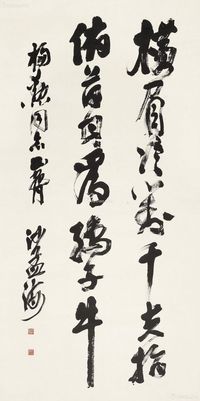 横眉冷对千夫指
俯首甘为孺子牛
同志正腕
沙孟海